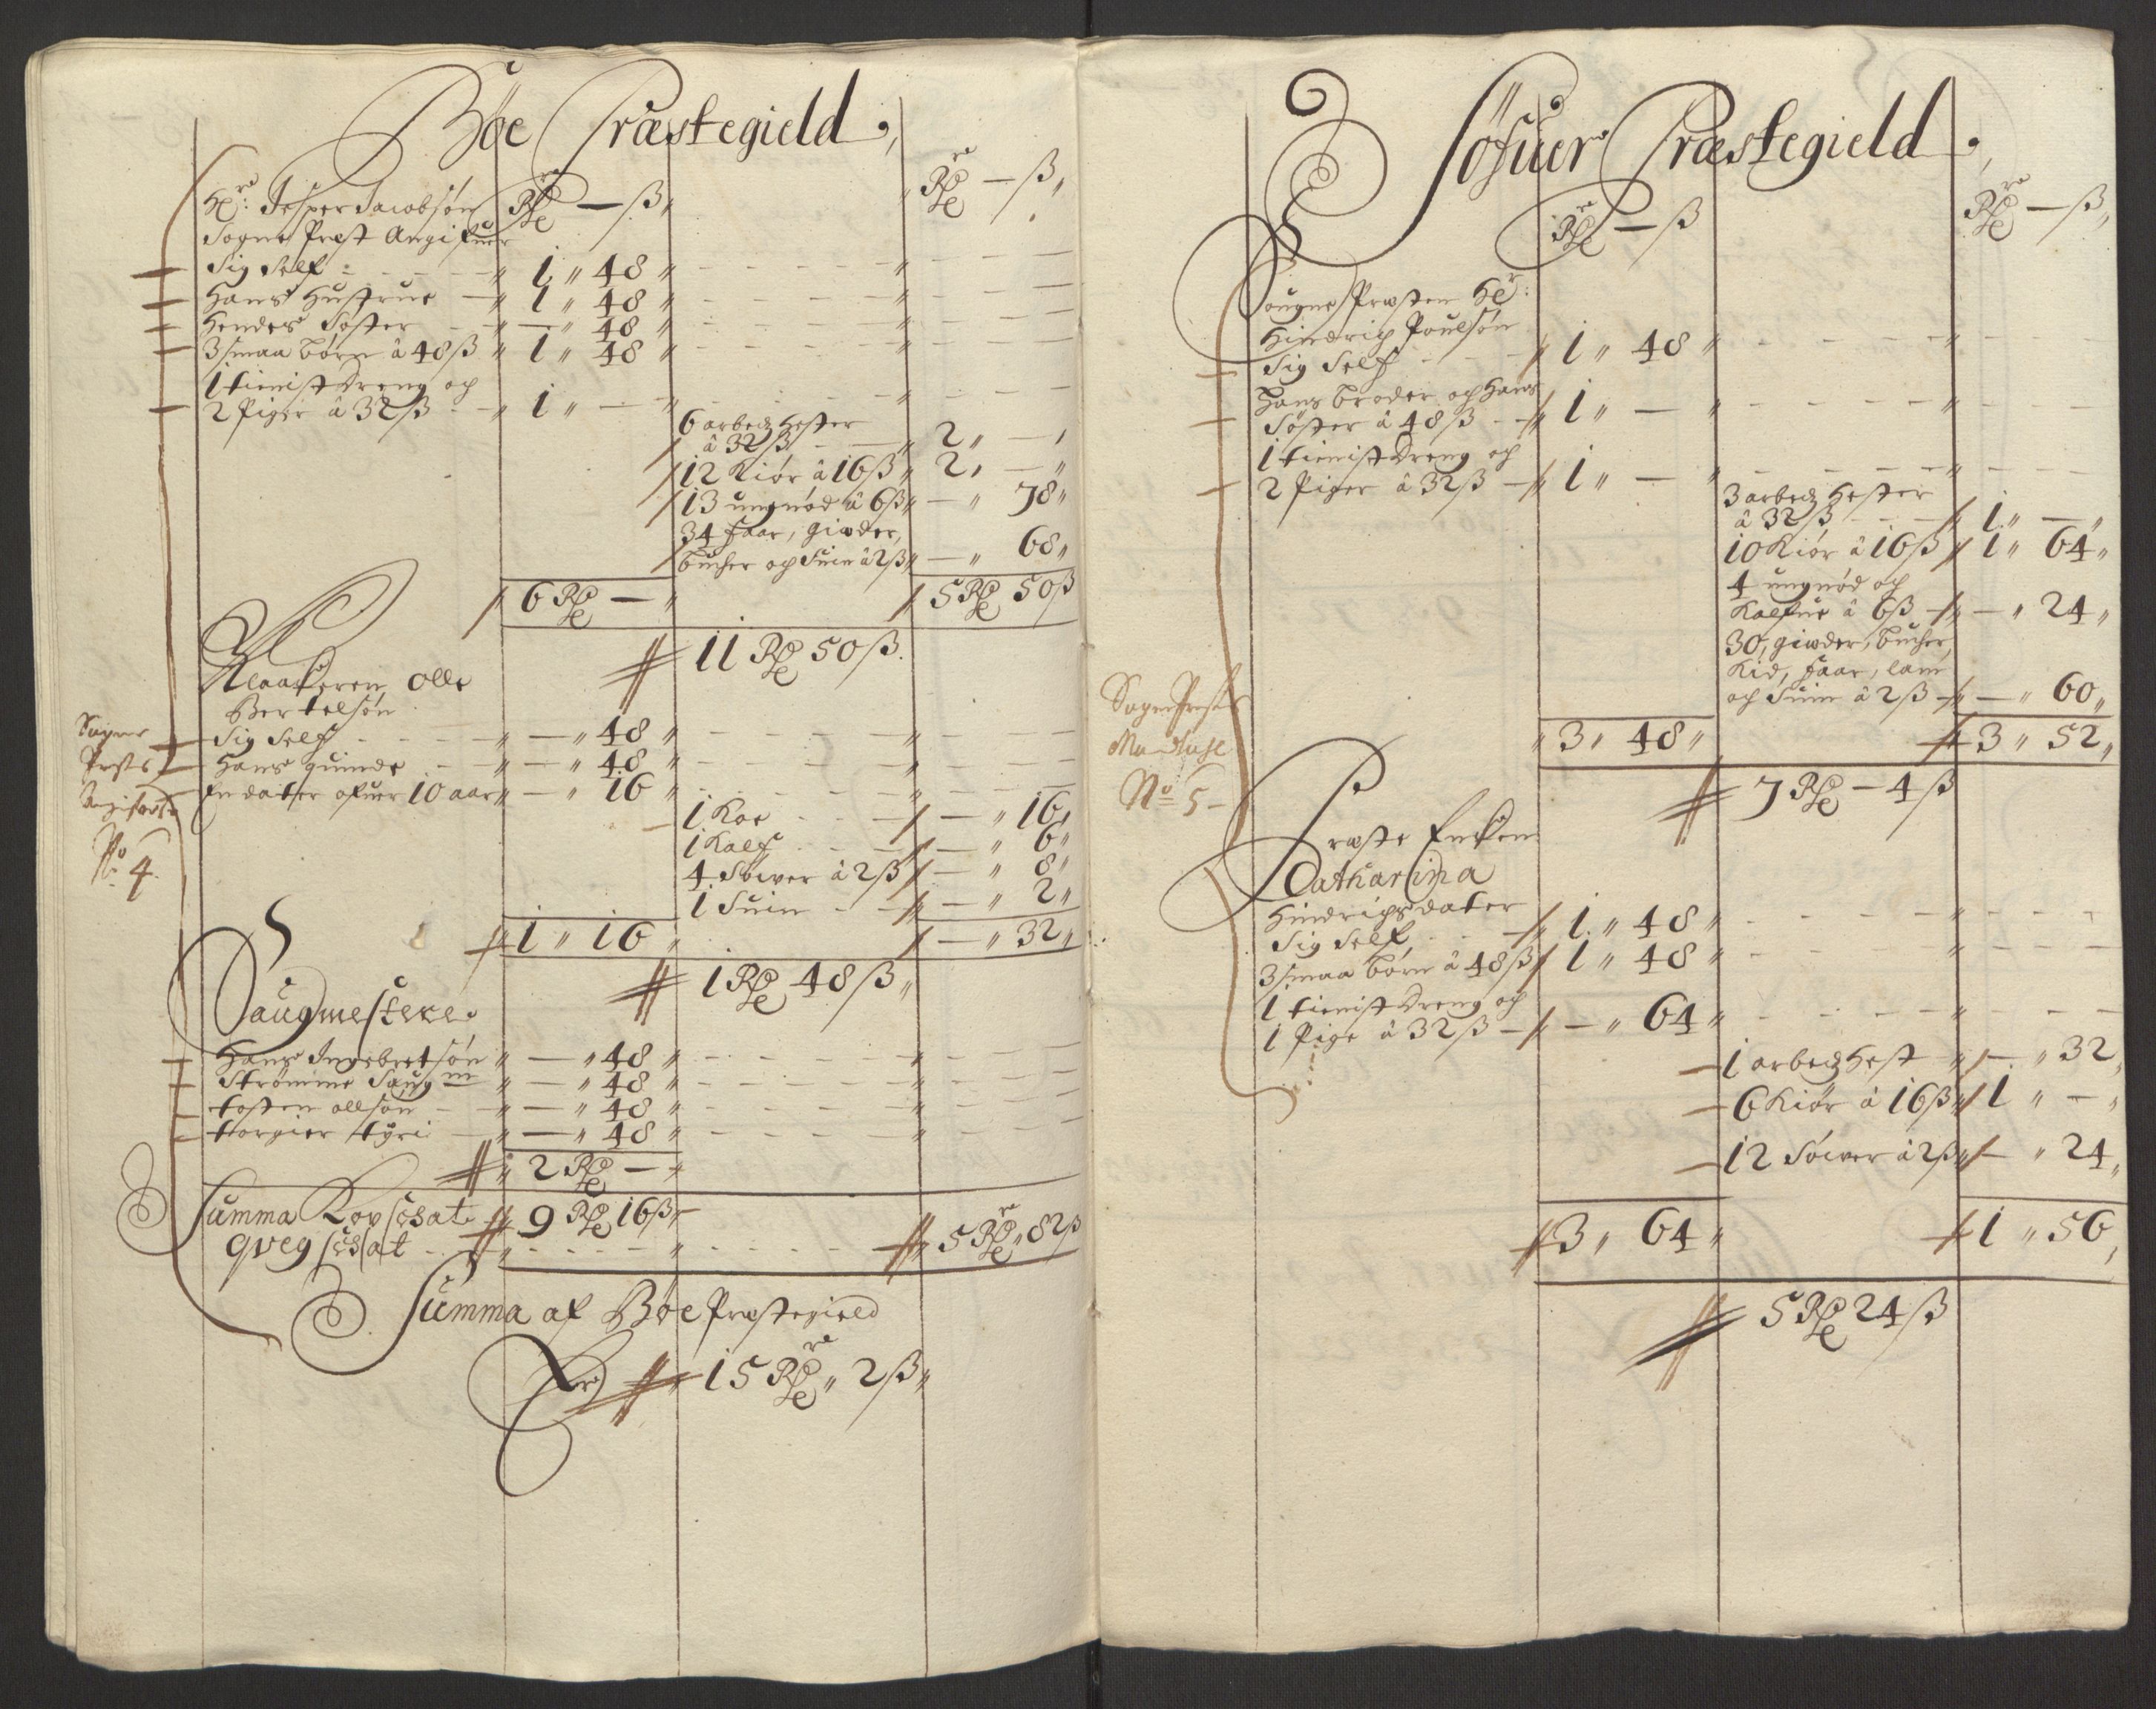 Bøe Præstegield,
Hr: Jesper Jacobsøn Rdr — ß
Rdr — ß
Sogne Præst Angifuer
Sig Self - - - 1 " 48
Hans Hustrue — 1 " 48
Hendes Søster - — " 48
3 smaa børn â 48 ß " 1 " 48
1 tienist Dreng och
2 Piger â 32 ß - 1 " —
6 arbeitz Hester
â 32 ß - — 2 " —
12 Kiør â 16 ß " 2 " —
13 ungnød â 6 ß " — " 78
34 faar, gieder,
bucher och Suin â 2 ß " — " 68
6 Rd — 5 Rd 50 ß
11 Rd 50 ß
Klockeren Olle
Bertelsøn
Sig Self - - - — " 48
Hans quinde — — " 48
En dater ofuer 10 aar — " 16
1 Koe - - — " 16
1 Kalf - - — " 6
4 Søwer â 2 ß — " 8
1 Suin - - — " 2
1 " 16 — " 32
1 Rd 48 ß
Sougnes
Prests
Angifuelse
No 4.
Saugmestere
Hans Ingebretsøn " — " 48
Strømme Saug m " — " 48
tosten ollsøn — " — " 48
torgier tyri — " — " 48
2 Rd —
Summa Kopschat 9 Rd 16 ß
qvegschat - - 5 Rdr 82 ß
Summa af Bøe Præstegield
Er 15 Rdr " 2 ß
Søfuer Præstegield,
Rdr — ß
Rdr — ß
Sougne Præsten Hr:
Hindrich Poulsøn
Sig Self - - - 1 " 48
Hans broder och Hans
Søster â 48 ß - 1 " —
1 tienist Dreng och
2 Piger â 32 ß — 1 " —
3 arbeitz Hester
â 32 ß - - 1 " —
10 Kiør â 16 ß 1 " 64
4 ungnød och
Kalfue â 6 ß — — " 24
30, gieder, bucher,
Kid, faar, lam
och Suin â 2 ß — " 60
3 " 48 3 " 52
7 Rd — 4 ß
Sogne Prests
Mandtahl
No 5 -
Præste Enken
Catharina
Hindrichsdater
Sig Self, - - 1 " 48
3 smaa børn â 48 ß 1 " 48
1 tienist Dreng och
1 Pige â 32 ß — — " 64
1 arbeitz Hest — " 32
6 Kiør â 16 ß 1 " —
12 Søwer â 2 ß — " 24
3 " 64 1 " 56
5 Rd 24 ß